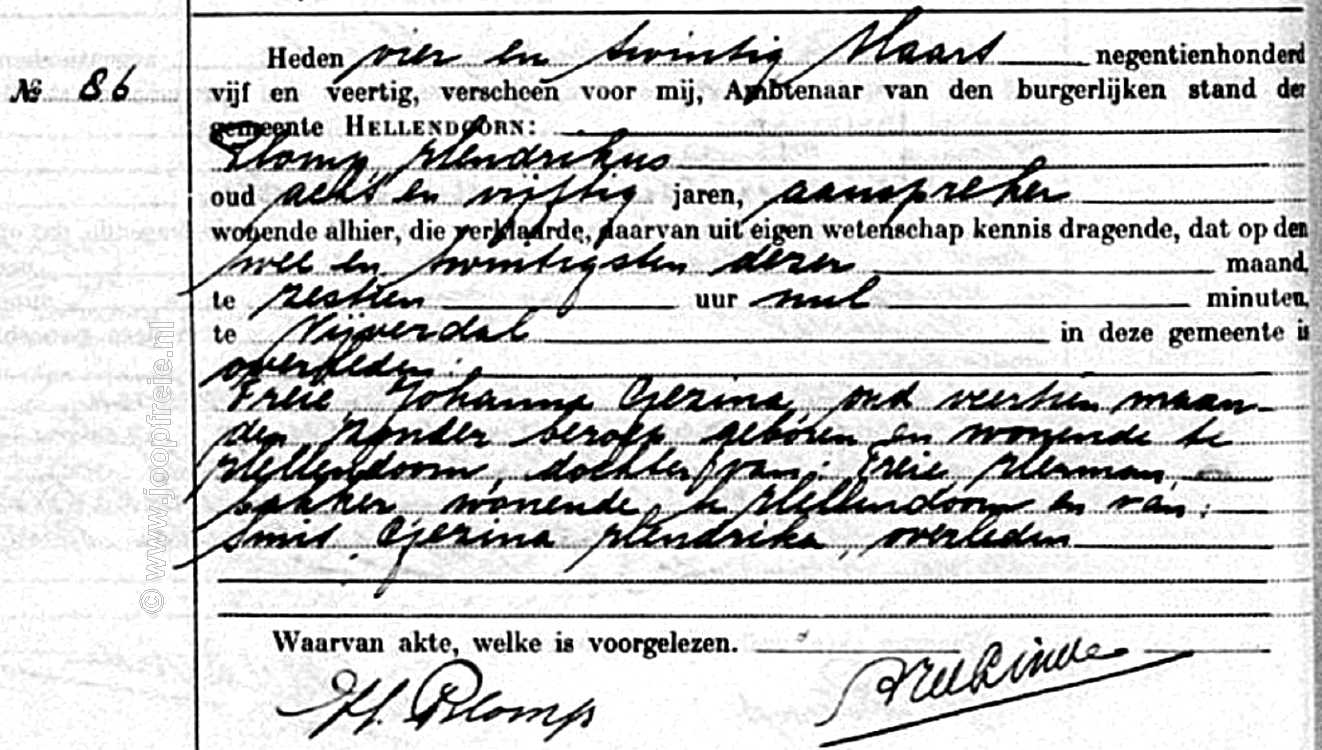 Heden vier en twintig Maart negentienhonderd
№ 86 vijf en veertig, verscheen voor mij, Ambtenaar van den burgerlijken stand der
gemeente HELLENDOORN:
Plomp, Hendrikus
oud acht en vijftig jaren, aanspreker
wonende alhier, die verklaarde, daarvan uit eigen wetenschap kennis dragende, dat op den
twee en twintigsten dezer maand,
te zestien uur nul minuten,
te Nijverdal in deze gemeente is
overleden:
Freie, Johanna Gezina, oud veertien maan-
den, zonder beroep geboren en wonende te
Hellendoorn, dochter van: Freie, Herman,
bakker, wonende te Hellendoorn en van:
Smit, Gezina Hendrika, overleden
Waarvan akte, welke is voorgelezen.
H. Plomp
© www.joopfreie.nl